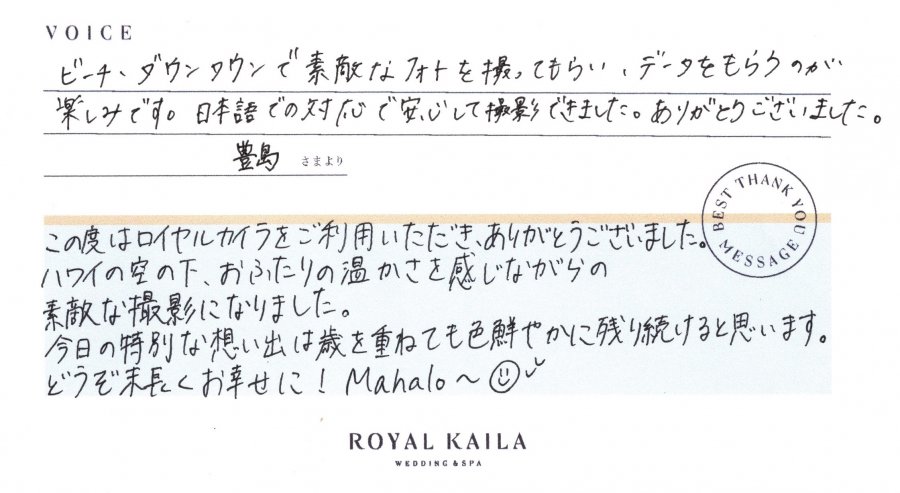 VOICE
ビーチ、ダウンタウンで素敵なフォトを撮ってもらい、データをもらうのが
楽しみです。日本語での対応で安心して撮影できました。ありがとうございました。
豊島 さまより
BEST THANK YOU MESSAGE
この度はロイヤルカイラをご利用いただき、ありがとうございました。
ハワイの空の下、おふたりの温かさを感じながらの
素敵な撮影になりました。
今日の特別な想い出は歳を重ねても色鮮やかに残り続けると思います。
どうぞ末長くお幸せに！Mahalo～
ROYAL KAILA
WEDDING & SPA